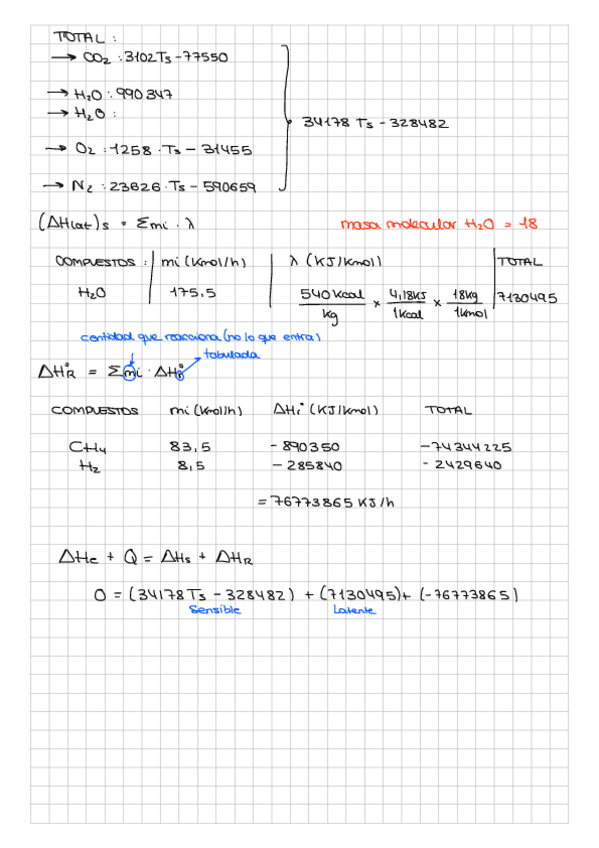 TOTAL :
→ CO2 : 3102Ts - 77550
→ H2O : 990347
→ H2O :
34178 Ts - 328482
→ O2 : 1258 · Ts - 31455
→ N2 : 23626 · Ts - 590659
(ΔHlat)s = Σmi · λ
masa molecular H2O = 18
COMPUESTOS : mi (Kmol/h) λ (KJ/Kmol) TOTAL
H2O 175,5 540 Kcal/Kg × 4,18KJ/1Kcal × 18Kg/1Kmol 7130495
cantidad que reacciona (no lo que entra)
tabulada
ΔH°R = Σmi · ΔHi°
COMPUESTOS mi (Kmol/h) ΔHi° (KJ/Kmol) TOTAL
CH4 83,5 - 890350 - 74344225
H2 8,5 - 285840 - 2429640
= 76773865 KJ/h
ΔHe + Q = ΔHs + ΔHR
0 = (34178Ts - 328482) + (7130495) + (-76773865)
Sensible Latente